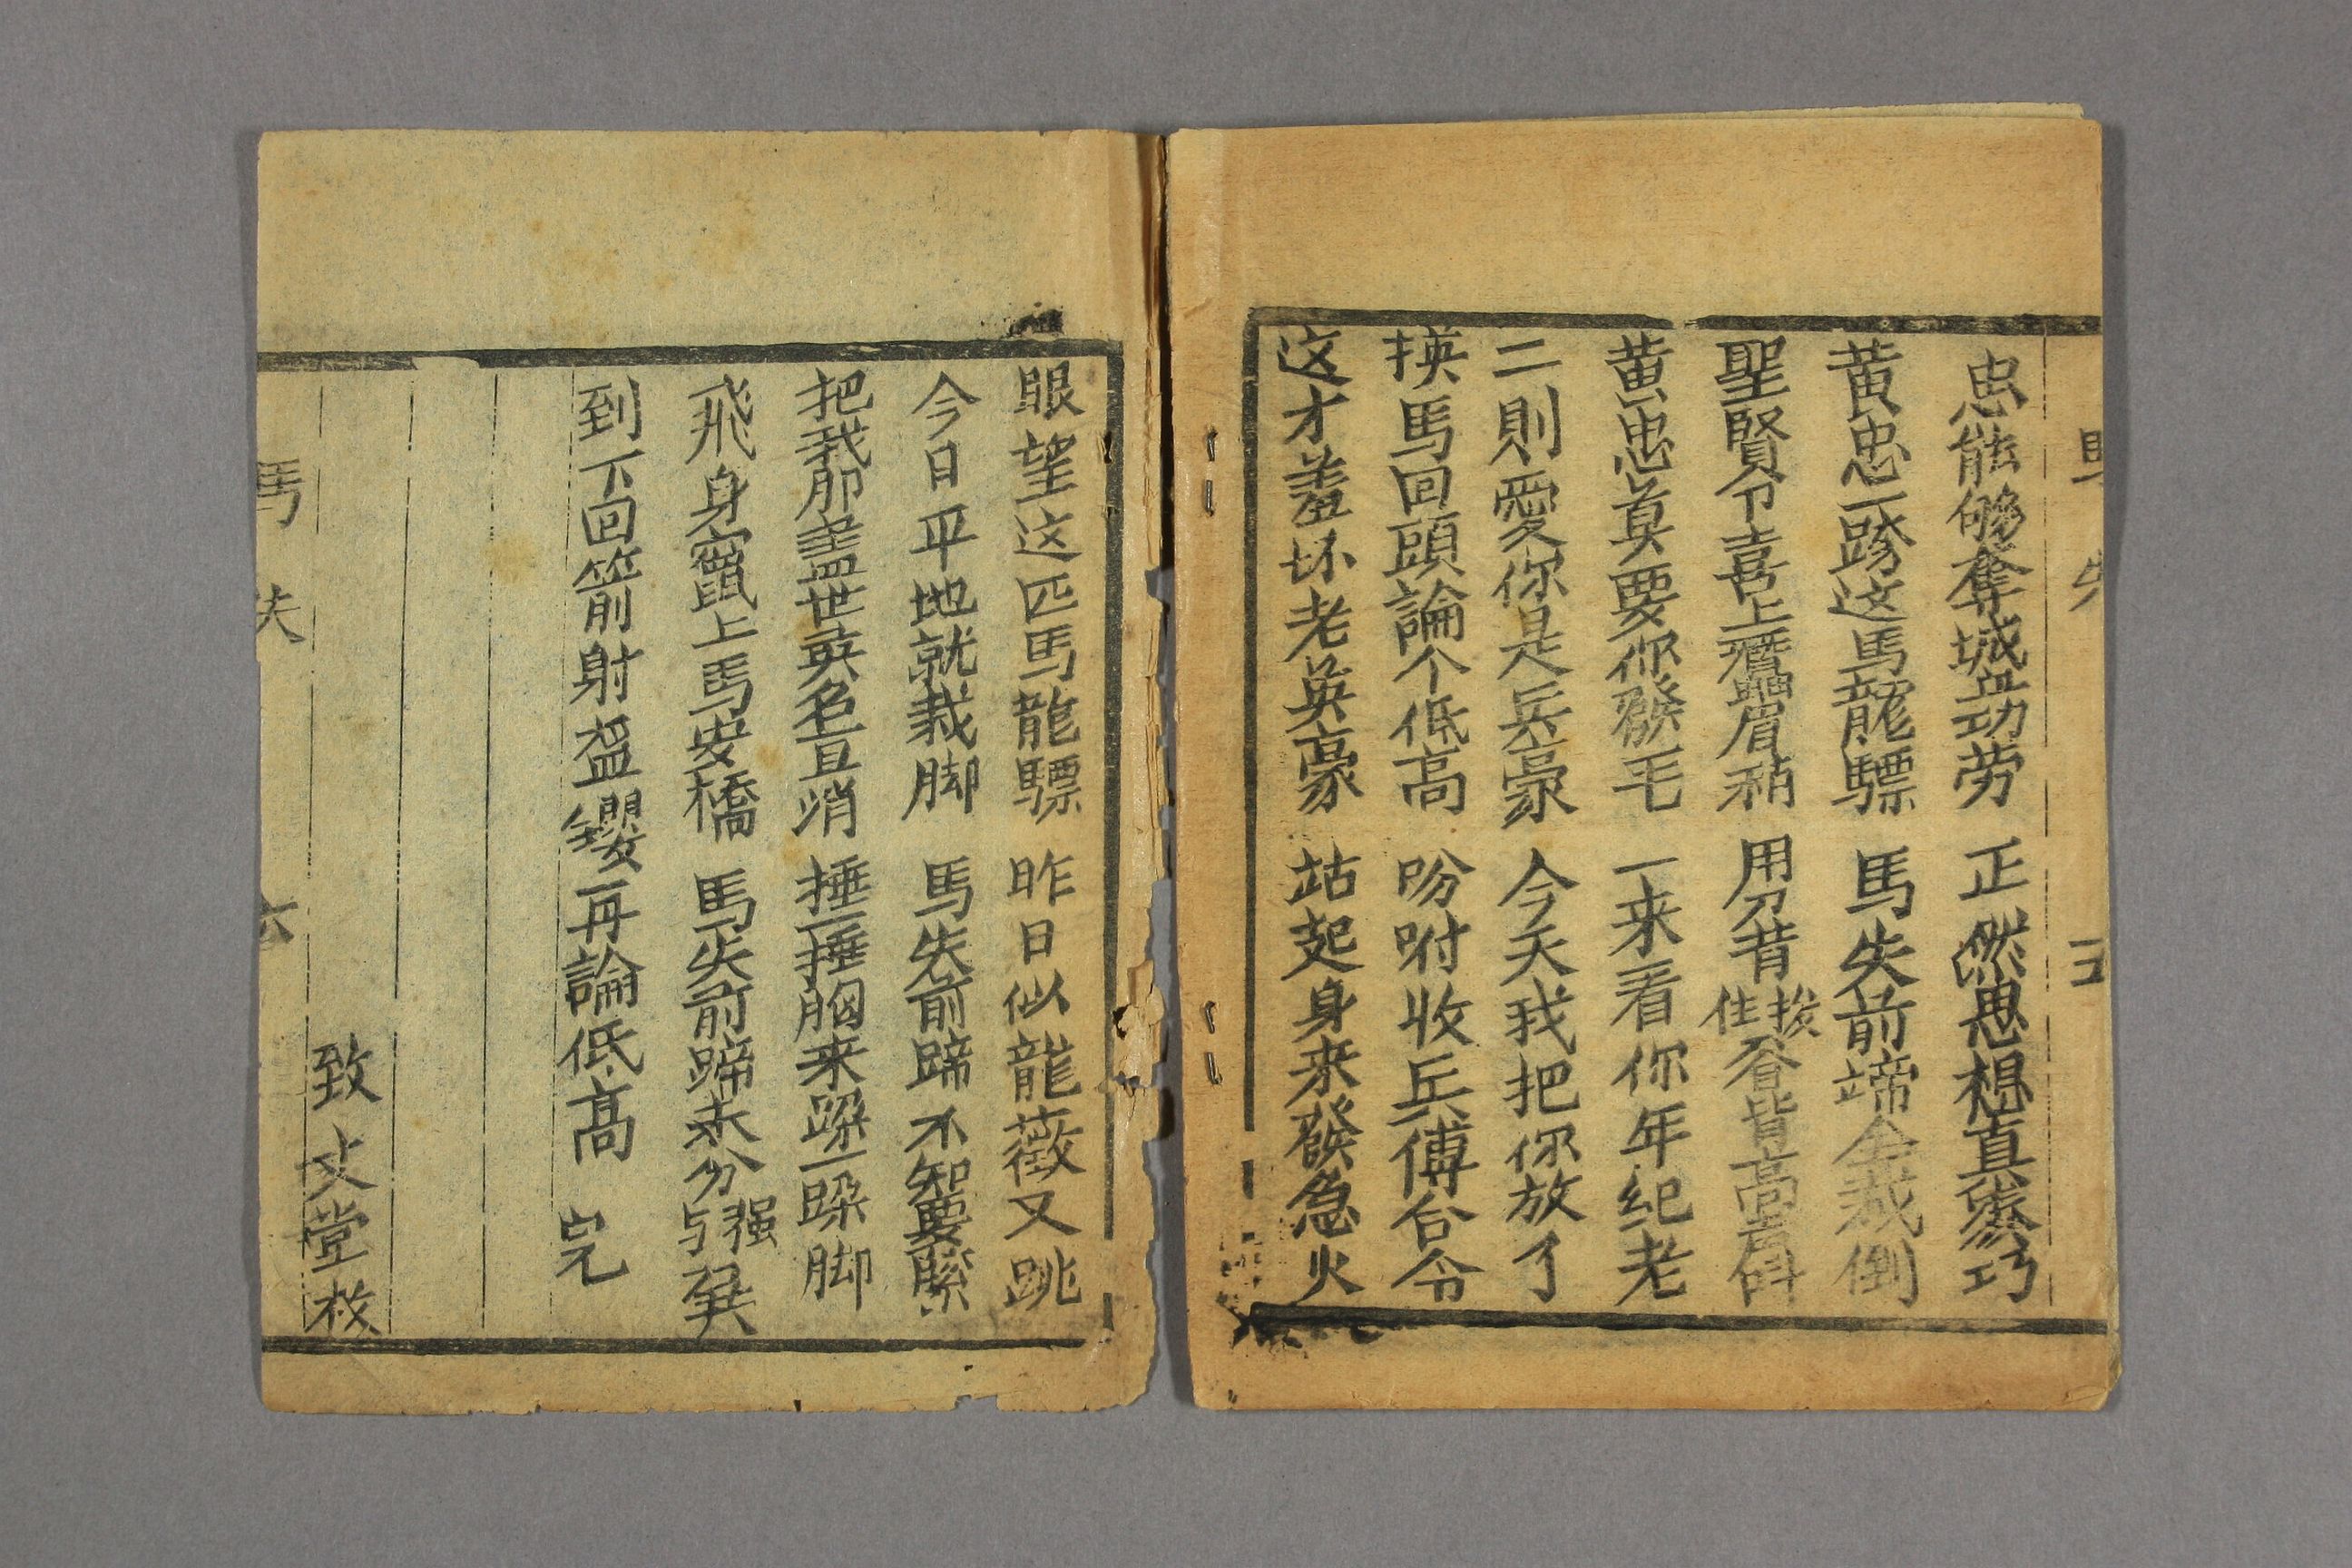 馬失
五
忠能够奪城立功劳 正然思想真凑巧
黄忠一跨这馬龍驃 馬失前蹄全栽倒
聖賢令喜上蚕眉稍 用刀背挨住脊背高声叫
黄忠真要你發毛 一来看你年纪老
二則愛你是兵豪 今天我把你放了
換馬回頭論个低高 吩咐收兵傅合令
这才羞坏老英豪 站起身来發急火
眼望这匹馬龍驃 昨日似龍薇又跳
今日平地就栽脚 馬失前蹄不知要緊
把我那盖世英名宜消 捶一捶胸来跺一跺脚
飛身竄上馬安橋 馬失前蹄未分强与弱
到下回箭射盔纓再論低高 完
致文堂梓
馬失
六